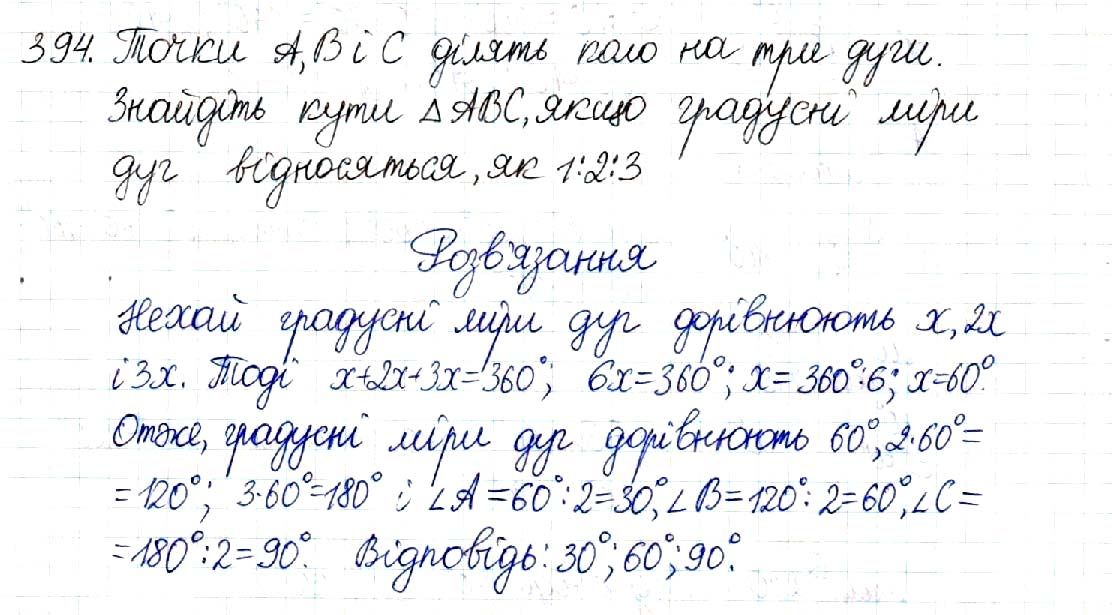 394. Точки A, B і C ділять коло на три дуги.
Знайдіть кути △ABC, якщо градусні міри
дуг відносяться, як 1:2:3
Розв'язання
Нехай градусні міри дуг дорівнюють x, 2x
і 3x. Тоді x+2x+3x=360°; 6x=360°; x=360°:6; x=60°.
Отже, градусні міри дуг дорівнюють 60°, 2·60°=
=120°; 3·60°=180° і ∠A=60°:2=30°, ∠B=120°:2=60°, ∠C=
=180°:2=90°. Відповідь: 30°; 60°; 90°.